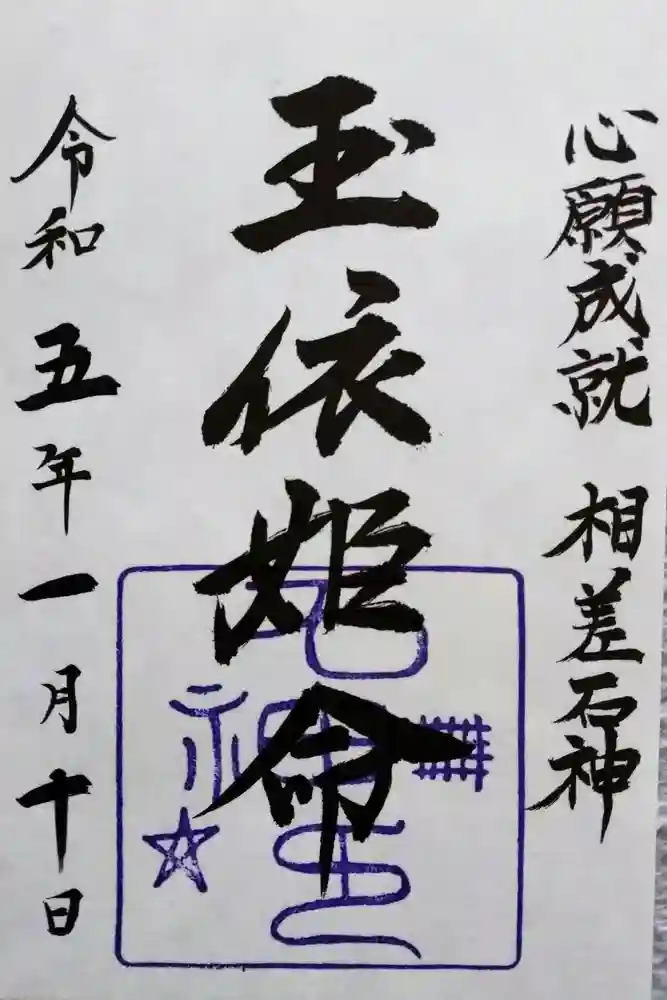 心願成就 相差石神
玉依姫命
令和五年一月十日
石神